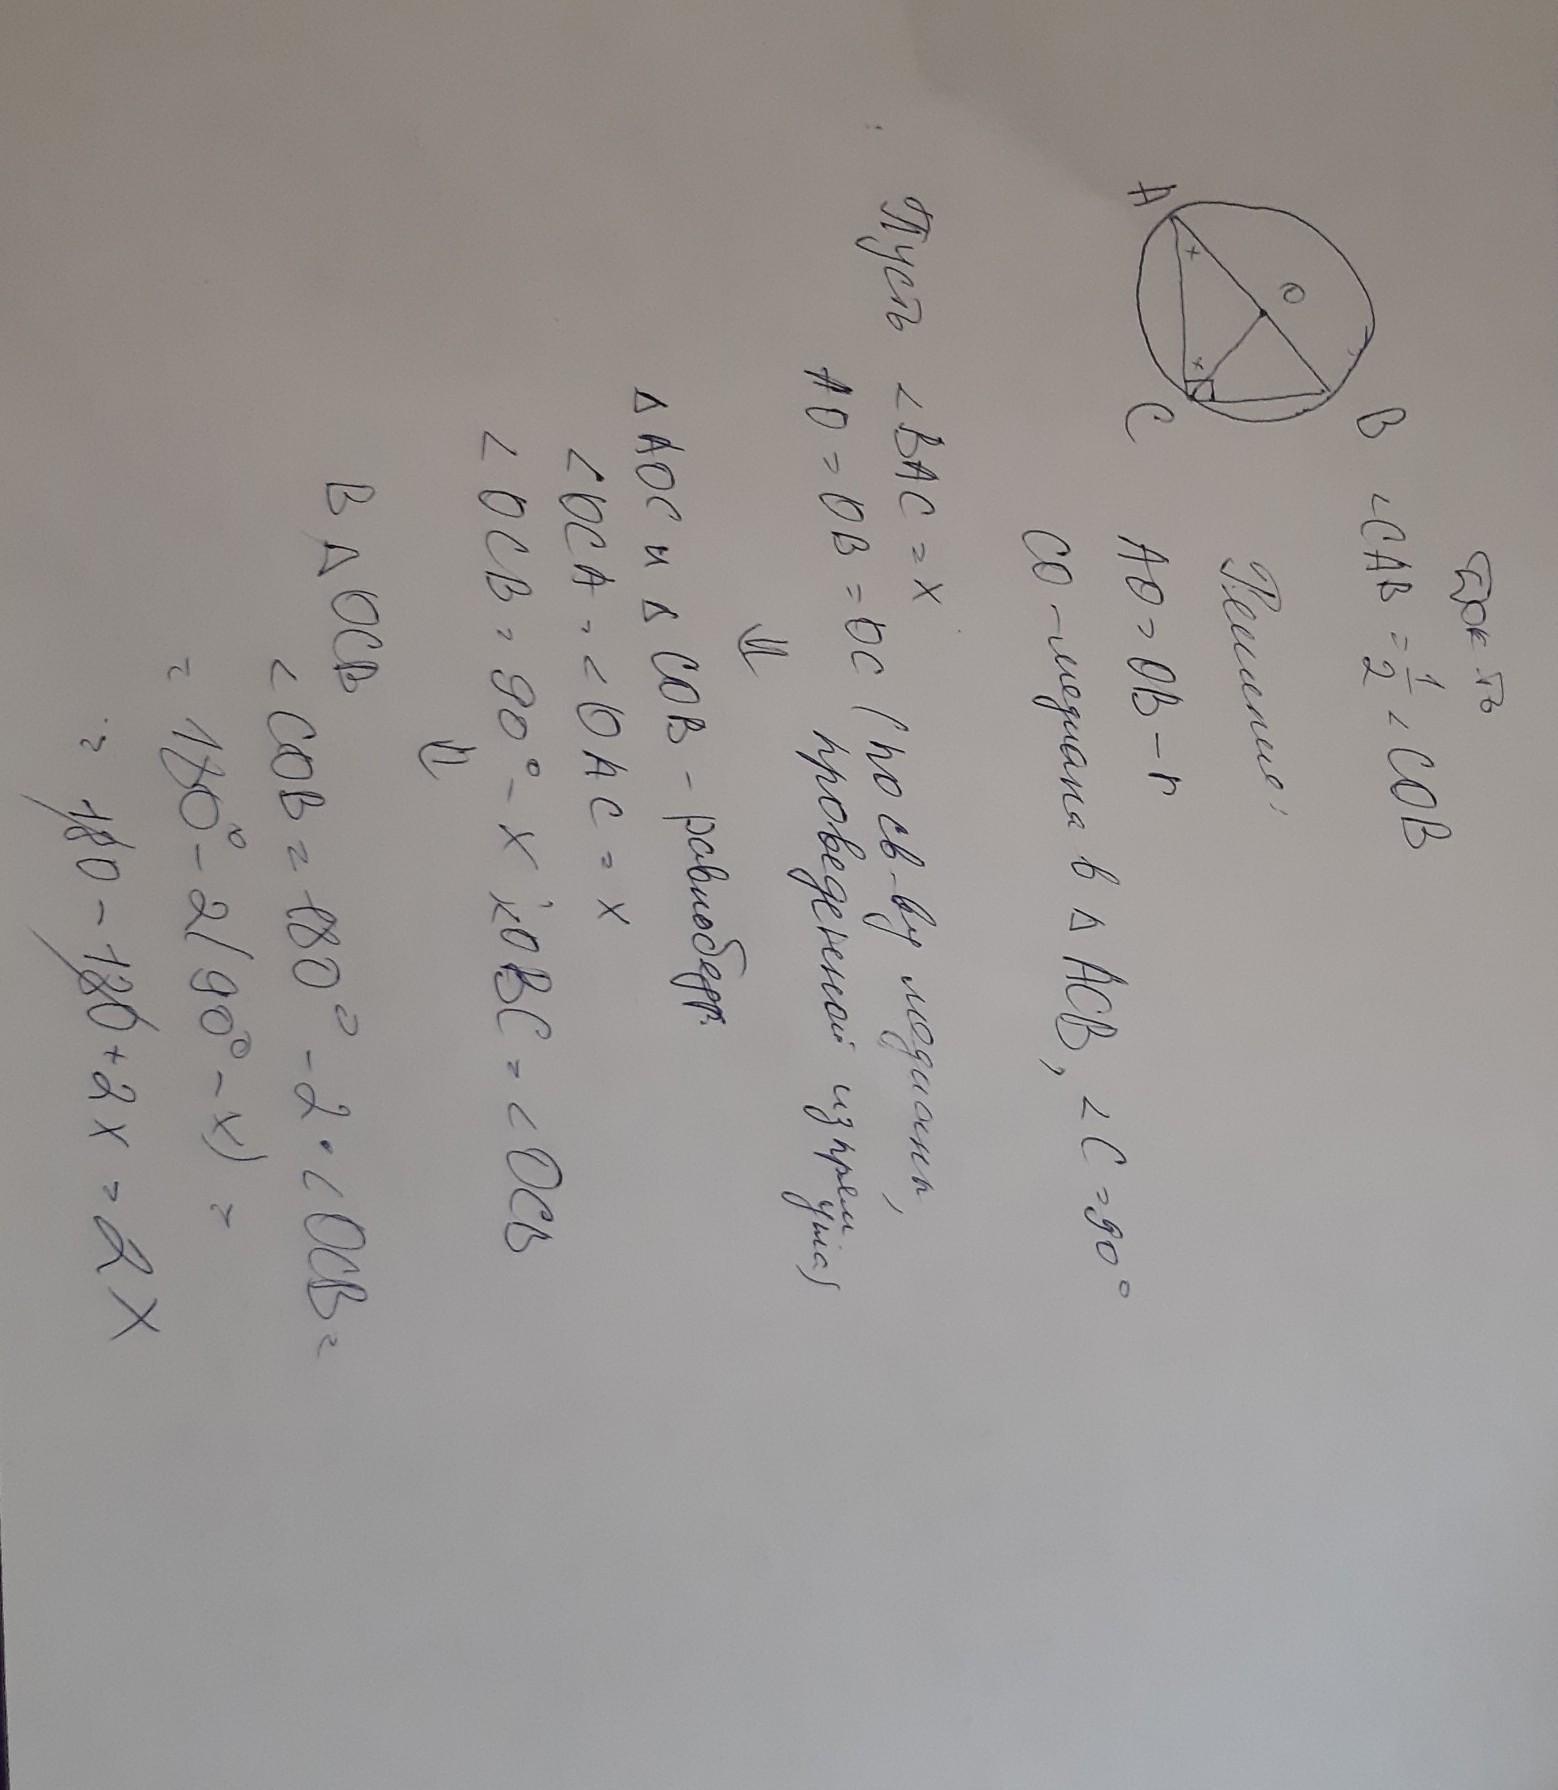 Док-ть
∠CAB = 1/2 ∠COB
Решение:
AO = OB - r
CO - медиана в △ ACB, ∠C = 90°
A
O
B
C
Пусть ∠BAC = x
AO = OB = OC (по св-ву медианы,
проведенной из прям угла)
⇓
△ AOC и △ COB - равнобедр.
∠OCA = ∠OAC = x
∠OCB = 90° - x ; ∠OBC = ∠OCB
⇓
В △ OCB
∠COB = 180° - 2 · ∠OCB =
= 180° - 2(90° - x) =
= 180 - 180 + 2x = 2x